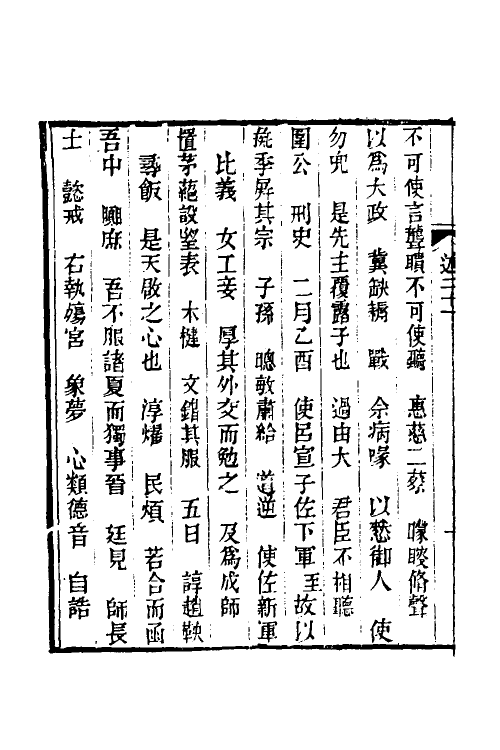 不可使言聾聵不可使聽　惠慈二蔡　矇瞍脩聲
以爲大政　冀缺耨　戰　余病喙　以憖御人　使
勿兜　是先主覆露子也　過由大　君臣不相聽
圉公　刑史　二月乙酉　使呂宣子佐下軍　至故以
季屏其宗　子孫　聰敏肅給　道逆　使佐新軍
比義　女工妾　厚其外交而勉之　及爲成師
置茅蕝設望表　木楗　文錯其服　五日　諄趙鞅
尋飯　是天啟之心也　淳燿　民煩　若合而函
吾中　興庥　吾不服諸夏而獨事晉　廷見　師長
士　懿戒　右執殤宮　象夢　心類德音　自誥